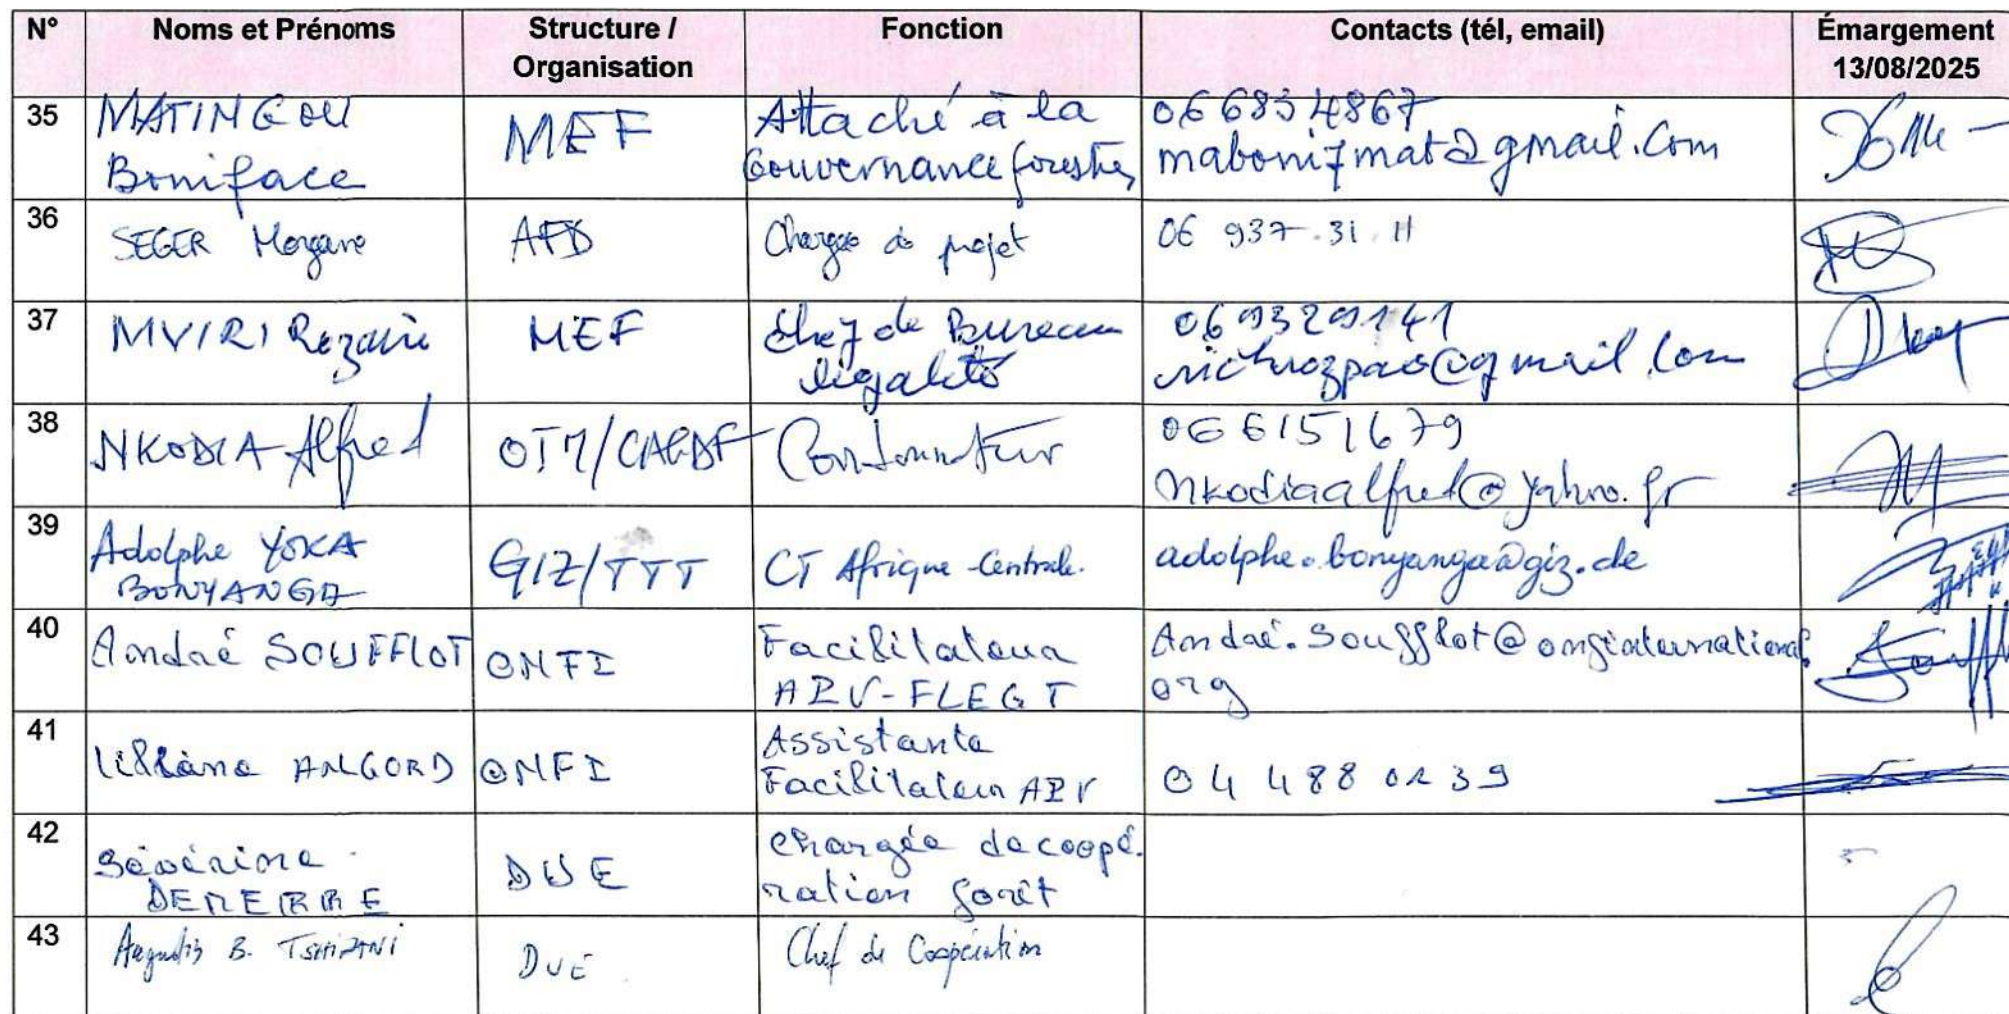 N° Noms et Prénoms Structure / Organisation Fonction Contacts (tél, email) Émargement 13/08/2025
35 MATINGOU Boniface MEF Attaché à la Gouvernance forestière 066834867 mabonifmat@gmail.com
36 SEGER Morgane AFD Chargée de projet 06 937.31.11
37 MVIRI Rozaire MEF Chef de Bureau légalité 069329141 richrozpao@gmail.com
38 NKODIA Alfred OIM/CAGDF Coordonnateur 066151679 nkodiaalfred@yahoo.fr
39 Adolphe YOKA BONYANGA GIZ/TTT CT Afrique Centrale. adolphe.bonyanga@giz.de
40 André SOUFFLOT ONFI Facilitateur APV-FLEGT André.Soufflot@onfinternational.org
41 Liliane ANGORD ONFI Assistante Facilitateur APV 04 488 01 39
42 Séverine DUE Chargée de coopération forêt
43 B. DUE Chef de Coopération